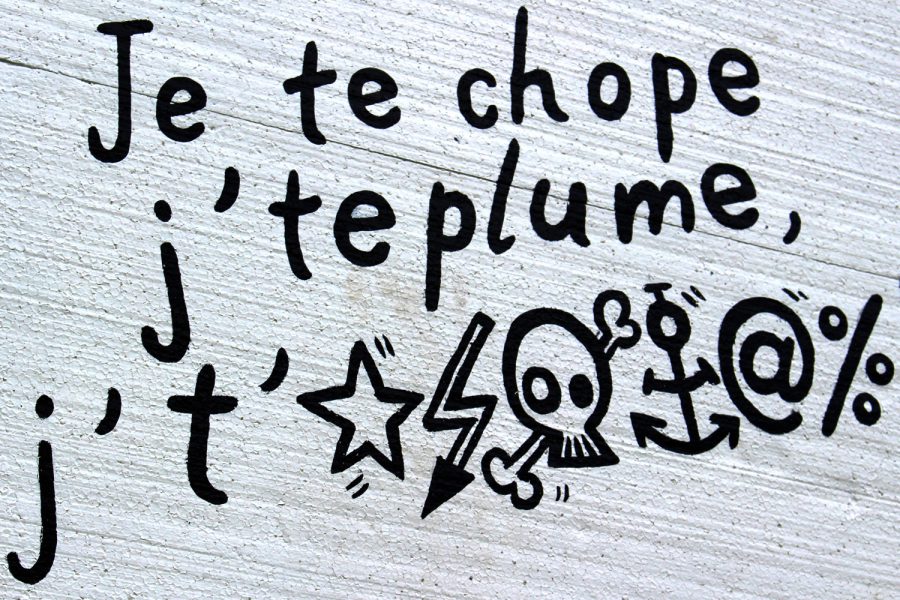 Je te chope
j'te plume,
j't'@%